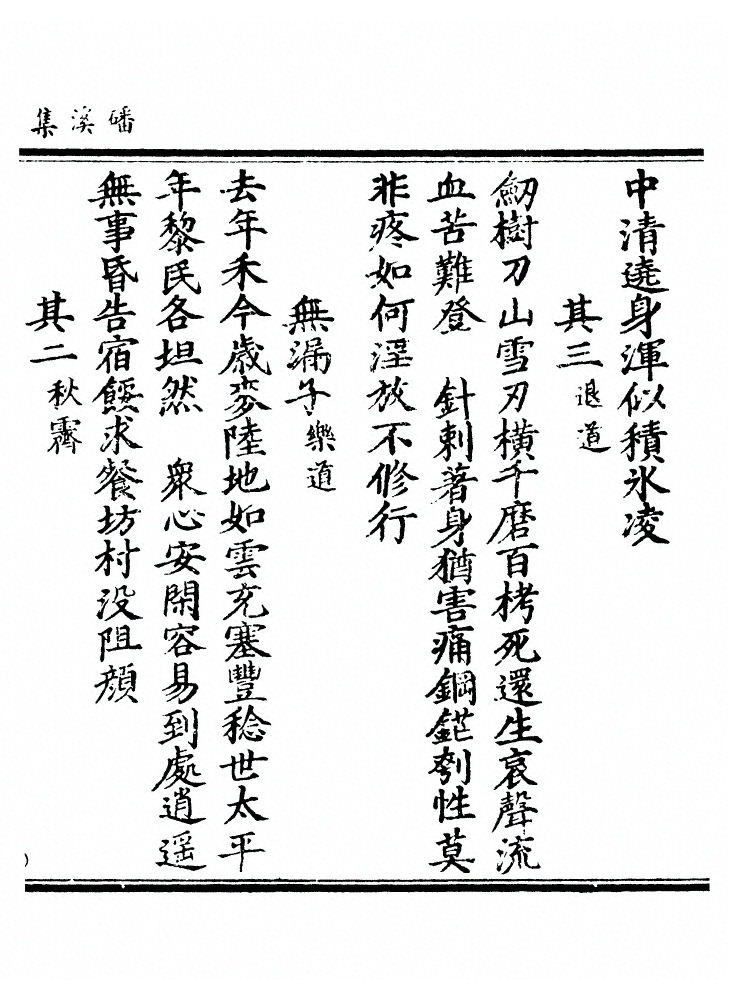 磻溪集
中清遶身渾似積氷凌
其三退道
劒樹刀山雪刃橫千磨百栲死還生哀聲流
血苦難登　針刺著身猶害痛鋼鋩刳性莫
非疼如何淫放不修行
無漏子樂道
去年禾今歲麥陸地如雲充塞豐稔世太平
年黎民各坦然　衆心安閑容易到處逍遥
無事昏告宿餒求餐坊村没阻顔
其二秋霽